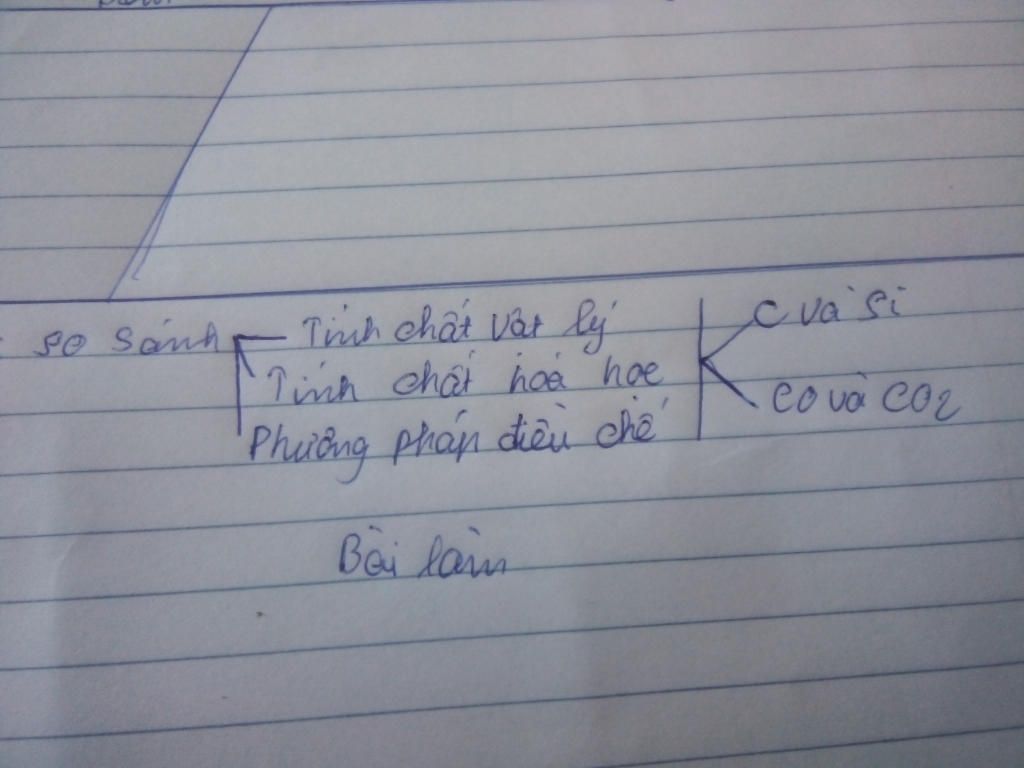 So Sánh
Tính chất vật lý
Tính chất hoá học
Phương pháp điều chế
C và Si
CO và CO2
Bài làm